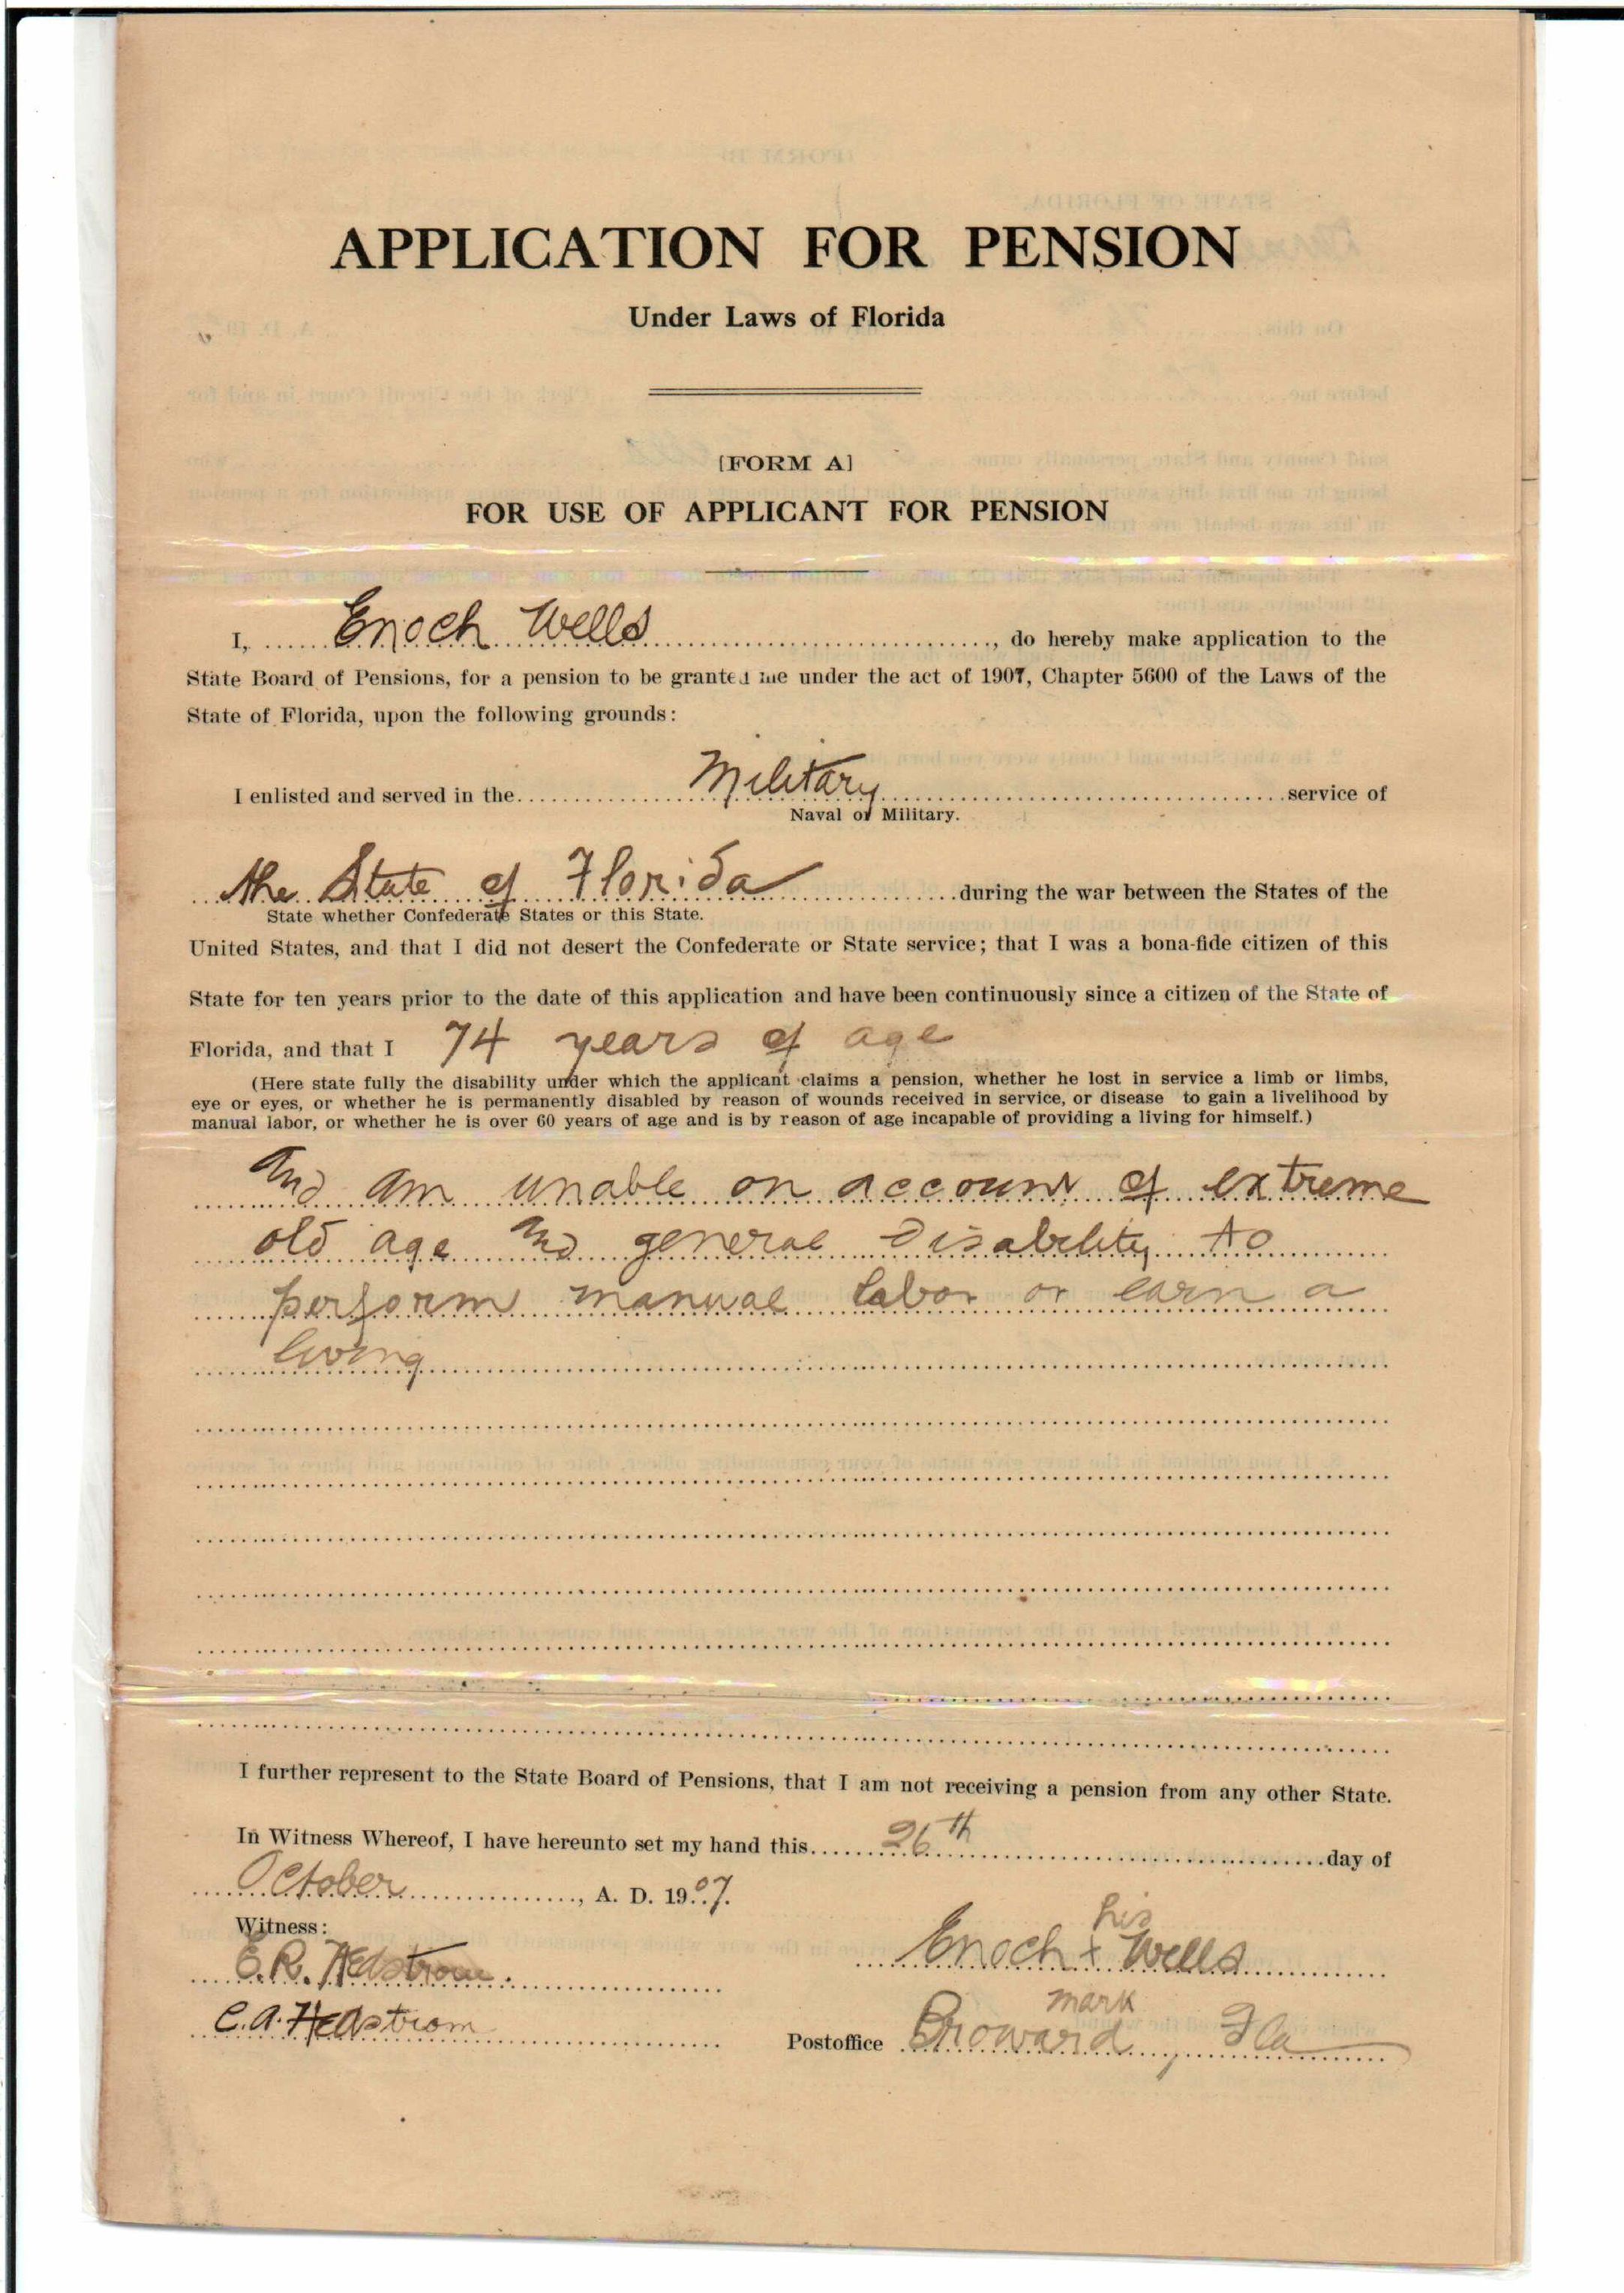 APPLICATION FOR PENSION
Under Laws of Florida
[FORM A]
FOR USE OF APPLICANT FOR PENSION
I, Enoch Wells, do hereby make application to the
State Board of Pensions, for a pension to be granted me under the act of 1907, Chapter 5600 of the Laws of the
State of Florida, upon the following grounds:
I enlisted and served in the Military service of
Naval or Military.
the State of Florida during the war between the States of the
State whether Confederate States or this State.
United States, and that I did not desert the Confederate or State service; that I was a bona-fide citizen of this
State for ten years prior to the date of this application and have been continuously since a citizen of the State of
Florida, and that I 74 years of age
(Here state fully the disability under which the applicant claims a pension, whether he lost in service a limb or limbs,
eye or eyes, or whether he is permanently disabled by reason of wounds received in service, or disease to gain a livelihood by
manual labor, or whether he is over 60 years of age and is by reason of age incapable of providing a living for himself.)
And am unable on account of extreme
old age and general Disability to
perform manual labor or earn a
living
I further represent to the State Board of Pensions, that I am not receiving a pension from any other State.
In Witness Whereof, I have hereunto set my hand this 26th day of
October, A. D. 1907.
Witness:
his
E.R. Hedstrom. Enoch x Wells
mark
C.A. Hedstrom
Postoffice Broward, Fla